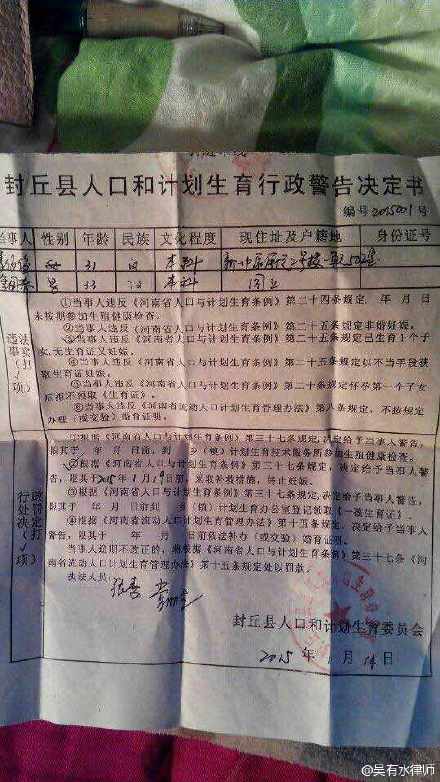 封丘县人口和计划生育行政警告决定书
编号2015001号
当事人 性别 年龄 民族 文化程度 现住址及户籍地 身份证号
女 31 汉 本科
男 33 汉 本科 同上
违法事实(打√项)
①当事人违反《河南省人口与计划生育条例》第二十四条规定， 年 月 日
未按期参加生殖健康检查。
②当事人违反《河南省人口与计划生育条例》第二十五条规定非婚妊娠。
③当事人违反《河南省人口与计划生育条例》第二十五条规定已生育1个子
女，无生育证又妊娠。
④当事人违反《河南省人口与计划生育条例》第二十五条规定以不当手段获
取生育证妊娠。
⑤当事人违反《河南省人口与计划生育条例》第二十条规定怀孕第一个子女
后拒不领取《生育证》。
⑥当事人违反《河南省流动人口计划生育管理办法》第八条规定，不按规定
办理(或交验)婚育证明。
行政处罚决定(打√项)
①根据《河南省人口与计划生育条例》第三十七条规定，决定给予当事人警告，
限其于 年 月 日前，到 乡(镇)计划生育技术服务所参加生殖健康检查。
②根据《河南省人口与计划生育条例》第三十七条规定，决定给予当事人警
告，限其于2015年1月19日前，采取补救措施，终止妊娠。
③根据《河南省人口与计划生育条例》第三十七条规定，决定给予当事人警告，
限其于 年 月 日前到 乡(镇)计划生育办公室登记领取《一孩生育证》
④根据《河南省流动人口计划生育管理办法》第十五条规定，决定给予当事人
警告，限其于 年 月 日前依法补办(或交验)婚育证明。
当事人逾期不改正的，将根据《河南省人口与计划生育条例》第三十七条《河
南省流动人口计划生育管理办法》第十五条规定处以罚款。
执法人员:
封丘县人口和计划生育委员会
2015年1月14日
@吴有水律师